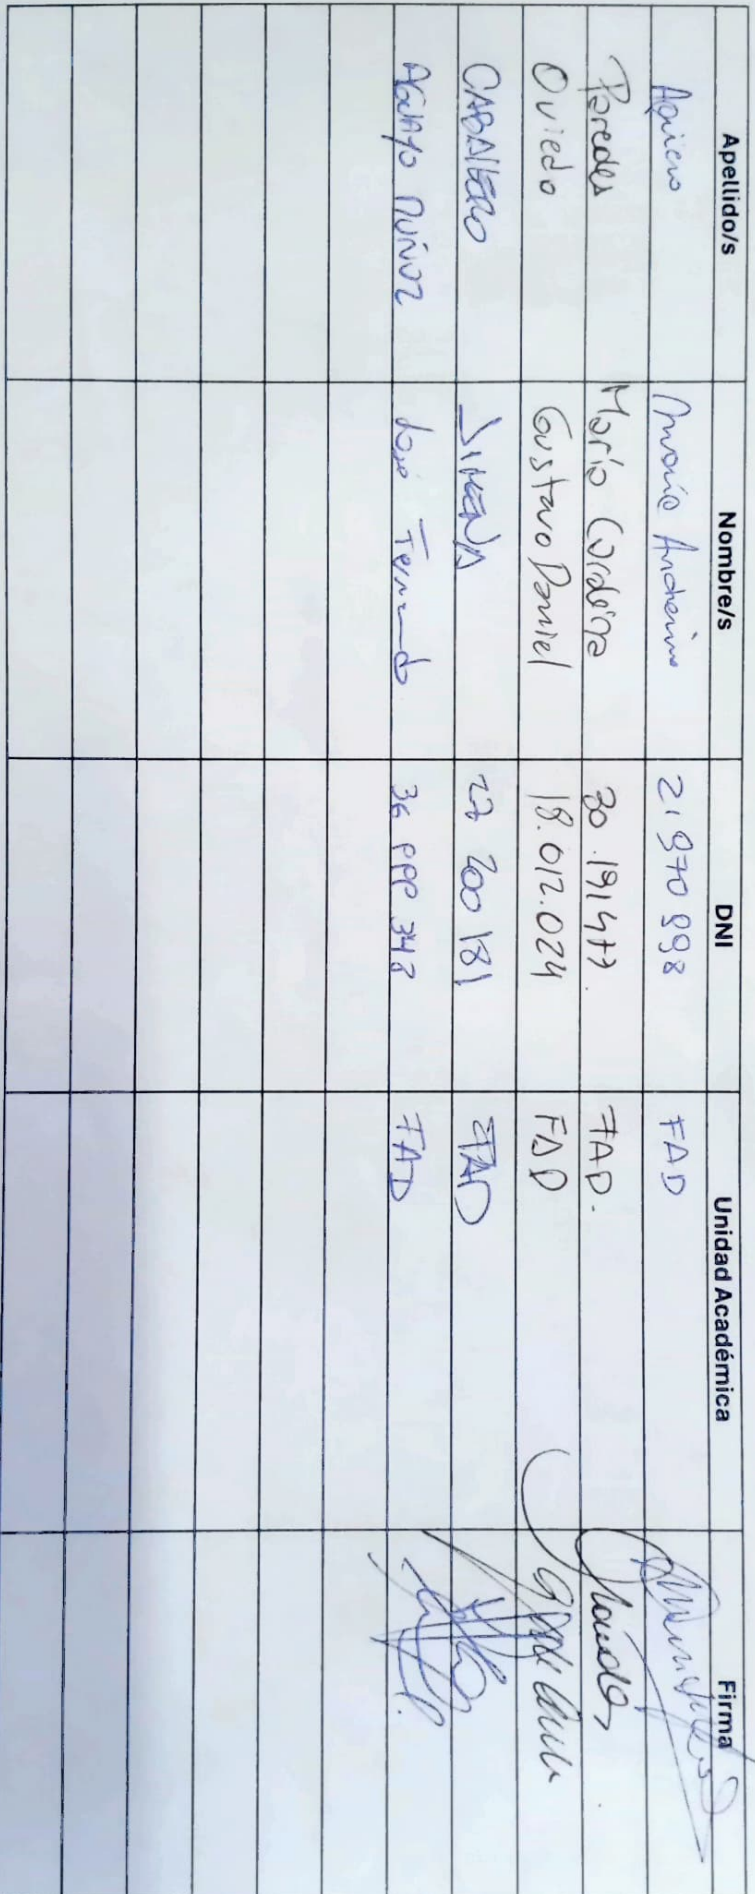 Apellido/s Nombre/s DNI Unidad Académica Firma
Agüero María Andreina 21970998 FAD
Paredes María Cordelia 30.191477. FAD.
Oviedo Gustavo Daniel 18.012.024 FAD
CABALLERO JIMENA 27 200 181 FAD
AGUAYO MUÑOZ José Fernando 36 999 348 FAD